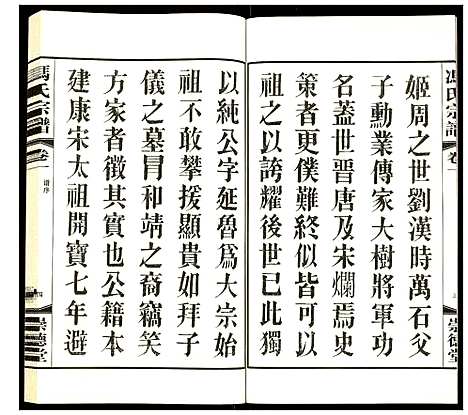 馮氏宗譜
卷一
崇德堂
姬周之世劉漢時萬石父
子勳業傳家大樹將軍功
名蓋世晉唐及宋爛焉史
策者更僕難終似皆可以
祖之以誇耀後世已此獨
以純公字延魯爲大宗始
祖不敢攀援顯貴如拜子
儀之墓冒和靖之裔竊笑
方家者徵其實也公籍本
建康宋太祖開寶七年避
馮氏宗譜
卷一
譜序
崇德堂